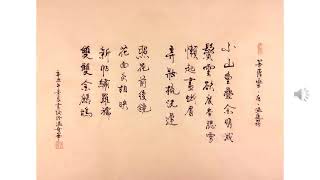 菩薩蠻·唐·溫庭筠
小山重疊金明滅
鬢雲欲度香腮雪
懶起畫蛾眉
弄妝梳洗遲
照花前後鏡
花面交相映
新帖繡羅襦
雙雙金鷓鴣